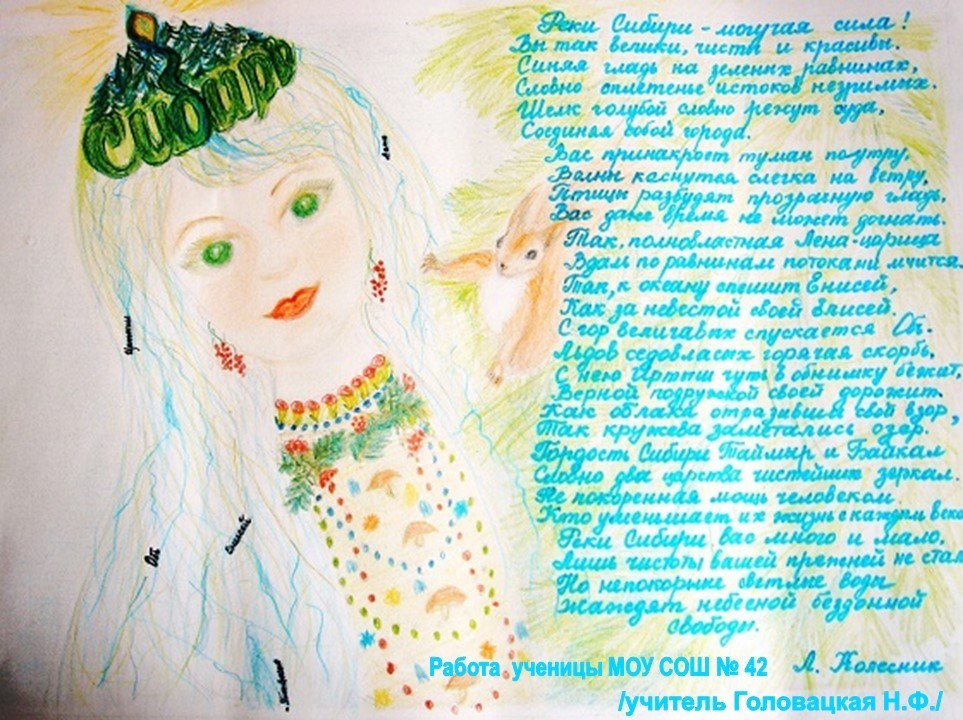 Сибирь
Реки Сибири - могучая сила!
Вы так велики, чисты и красивы.
Синяя гладь на зеленых равнинах,
Словно сплетенье истоков незримых.
Шелк голубой словно режут суда,
Соединяя собой города.
Вас принакроет туман поутру,
Волны коснутся слегка на ветру,
Птицы разбудят прозрачную гладь,
Вас даже время не может догнать.
Так, полновластная Лена-царица
Вдаль по равнинам потоками мчится.
Так, к океану спешит Енисей,
Как за невестой своей
С гор величавых спускается Обь.
Льдов седовласых горячая скорбь,
С нею Иртыш чуть в обнимку бежит,
Верной подружкой своей дорожит.
Как облака отразивши свой взор,
Так кружева заметались озер.
Гордость Сибири Таймыр и Байкал
Словно два царства чистейших зеркал.
Не покоренная мощь человеком
Кто уменьшает их жизнь с каждым веко
Реки Сибири, вас много и мало.
Лишь чистоты вашей прежней не стал
Но непокорные светлые воды
Жаждят небесной бездонной
свободы.
Л. Колесник
Лена
Иртыш
Обь
Енисей
Работа ученицы МОУ СОШ № 42
/учитель Головацкая Н.Ф./